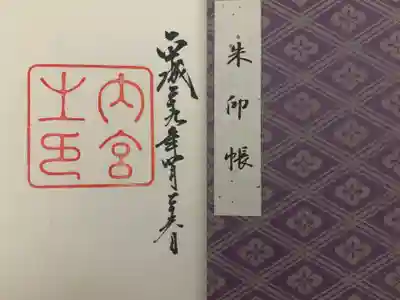 朱印帳
平成二十九年四月二十六日
内宮
之印